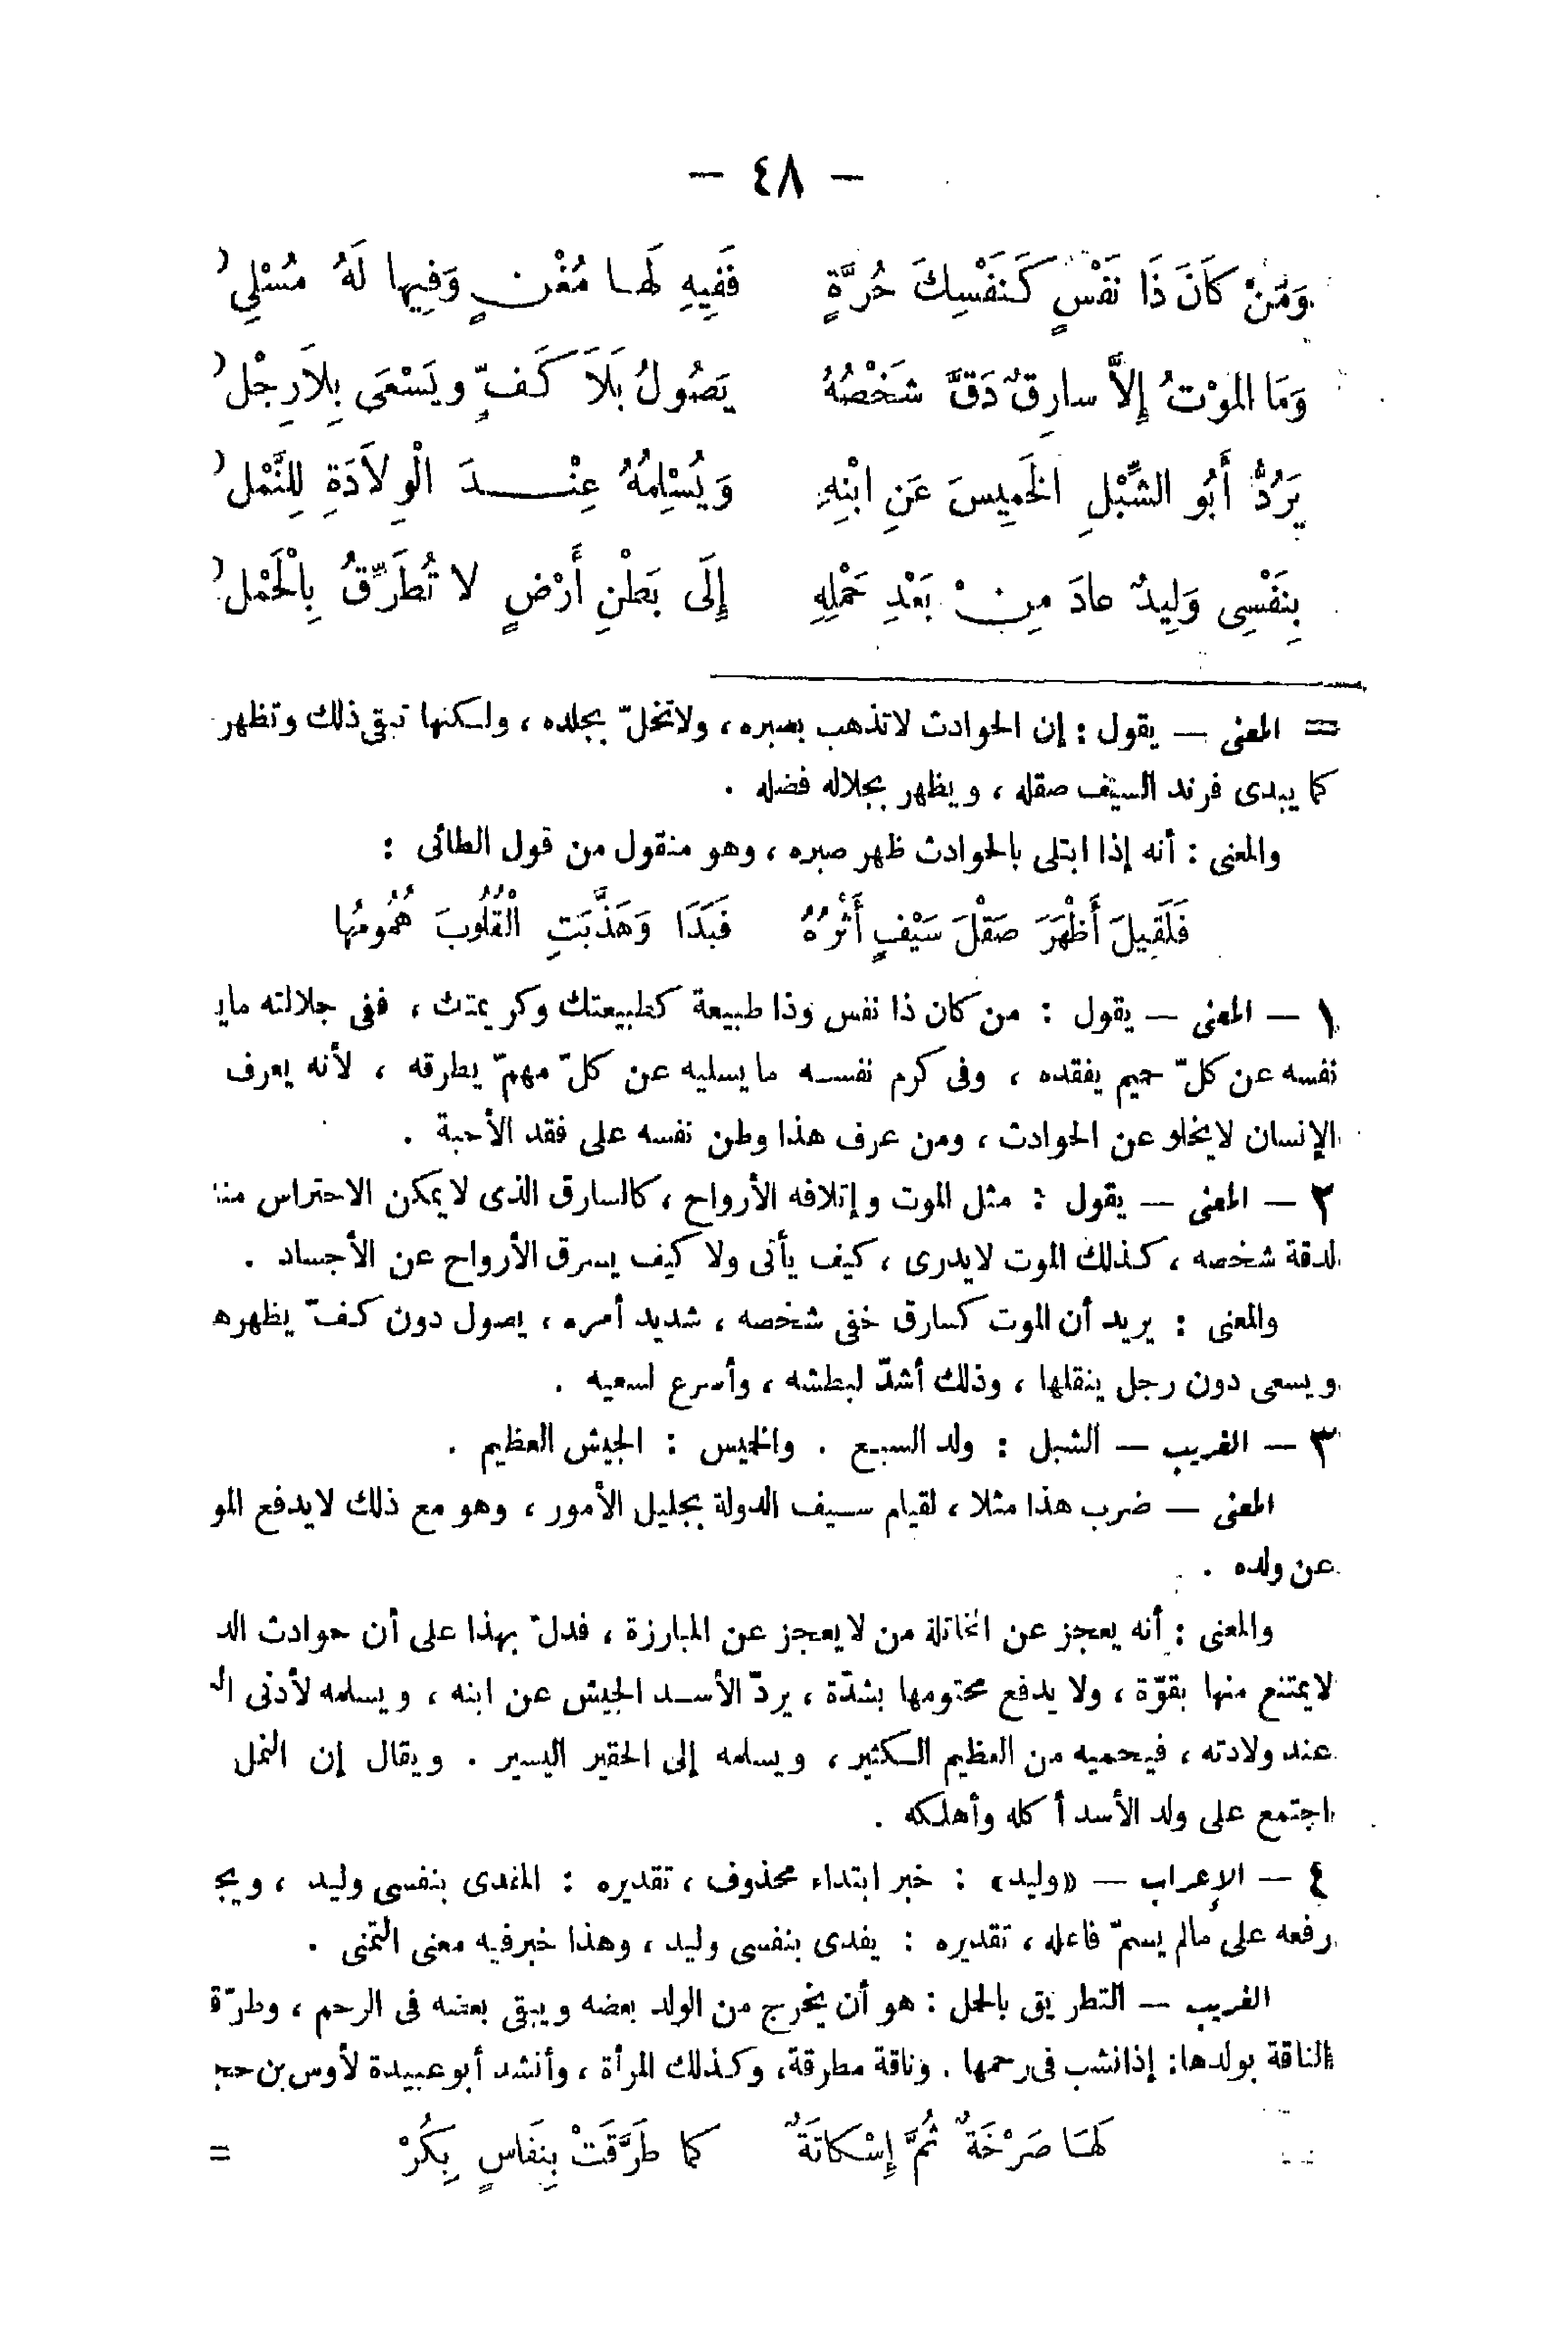 — ٤٨ —
وَمَنْ كَانَ ذَا نَفْسٍ كَنَفْسِكَ حُرَّةٍ فَفِيهِ لَهَا مُغْنٍ وَفِيهَا لَهُ مُسْلِي
وَمَا المَوْتُ إِلاَّ سارِقٌ دَقَّ شَخْصُهُ يَصُولُ بِلاَ كَفٍّ ويَسْعَى بِلاَ رِجْلِ
يَرُدُّ أَبُو الشِّبْلِ الخَمِيسَ عَنِ ابْنِهِ وَيُسْلِمُهُ عِنْدَ الْوِلاَدَةِ لِلنَّمْلِ
بِنَفْسِى وَلِيدٌ عادَ مِنْ بَعْدِ حَمْلِهِ إِلَى بَطْنِ أَرْضٍ لا تُطَرِّقُ بِالْحَمْلِ
= المعنى — يقول : إن الحوادث لاتذهب بصبره ، ولاتخلّ بجلده ، ولكنها تبقى ذلك وتظهر
كما يبدى فرند السيف صقله ، ويظهر بجلاله فضله .
والمعنى : أنه إذا ابتلى بالحوادث ظهر صبره ، وهو منقول من قول الطائى :
فَلَقِيلَ أَظْهَرَ صَقْلَ سَيْفٍ أَثْرُهُ فَبَدَا وَهَذَّبَتِ الْقُلُوبَ هُمُومُها
١ — المعنى — يقول : من كان ذا نفس وذا طبيعة كطبيعتك وكريمتك ، ففى جلالته
نفسه عن كلّ حميم يفقده ، وفى كرم نفسه مايسليه عن كلّ مهمّ يطرقه ، لأنه يعرف
الإنسان لايخلو عن الحوادث ، ومن عرف هذا وطن نفسه على فقد الأحبة .
٢ — المعنى — يقول : مثل الموت وإتلافه الأرواح ، كالسارق الذى لايمكن الاحتراس منه
لدقة شخصه ، كذلك الموت لايدرى ، كيف يأتى ولا كيف يسرق الأرواح عن الأجساد .
والمعنى : يريد أن الموت كسارق خفى شخصه ، شديد أمره ، يصول دون كفّ يظهره
ويسعى دون رجل ينقلها ، وذلك أشدّ لبطشه ، وأسرع لسعيه .
٣ — الغريب — الشبل : ولد السبع . والخميس : الجيش العظيم .
المعنى — ضرب هذا مثلا ، لقيام سيف الدولة بجليل الأمور ، وهو مع ذلك لايدفع المو
عن ولده .
والمعنى : أنه يعجز عن المخاتلة من لايعجز عن المبارزة ، فدلّ بهذا على أن حوادث الد
لايمتنع منها بقوّة ، ولا يدفع محتومها بشدّة ، يردّ الأسد الجيش عن ابنه ، ويسلمه لأدنى
عند ولادته ، فيحميه من العظيم الكثير ، ويسلمه إلى الحقير اليسير . ويقال إن النمل
اجتمع على ولد الأسد أكله وأهلكه .
٤ — الإعراب — «وليد» : خبر ابتداء محذوف ، تقديره : المفدى بنفسى وليد ، ويج
رفعه على مالم يسمّ فاعله ، تقديره : يفدى بنفسى وليد ، وهذا خبر فيه معنى التمنى .
الغريب — التطريق بالحمل : هو أن يخرج من الولد بعضه ويبقى بعضه فى الرحم ، وطرّق
الناقة بولدها : إذا نشب فى رحمها . وناقة مطرقة ، وكذلك المرأة ، وأنشد أبو عبيدة لأوس بن حج
لَهَا صَرْخَةٌ ثُمَّ إِسْكاتَةٌ كما طَرَّقَتْ بِنَفَاسٍ بِكُرْ =